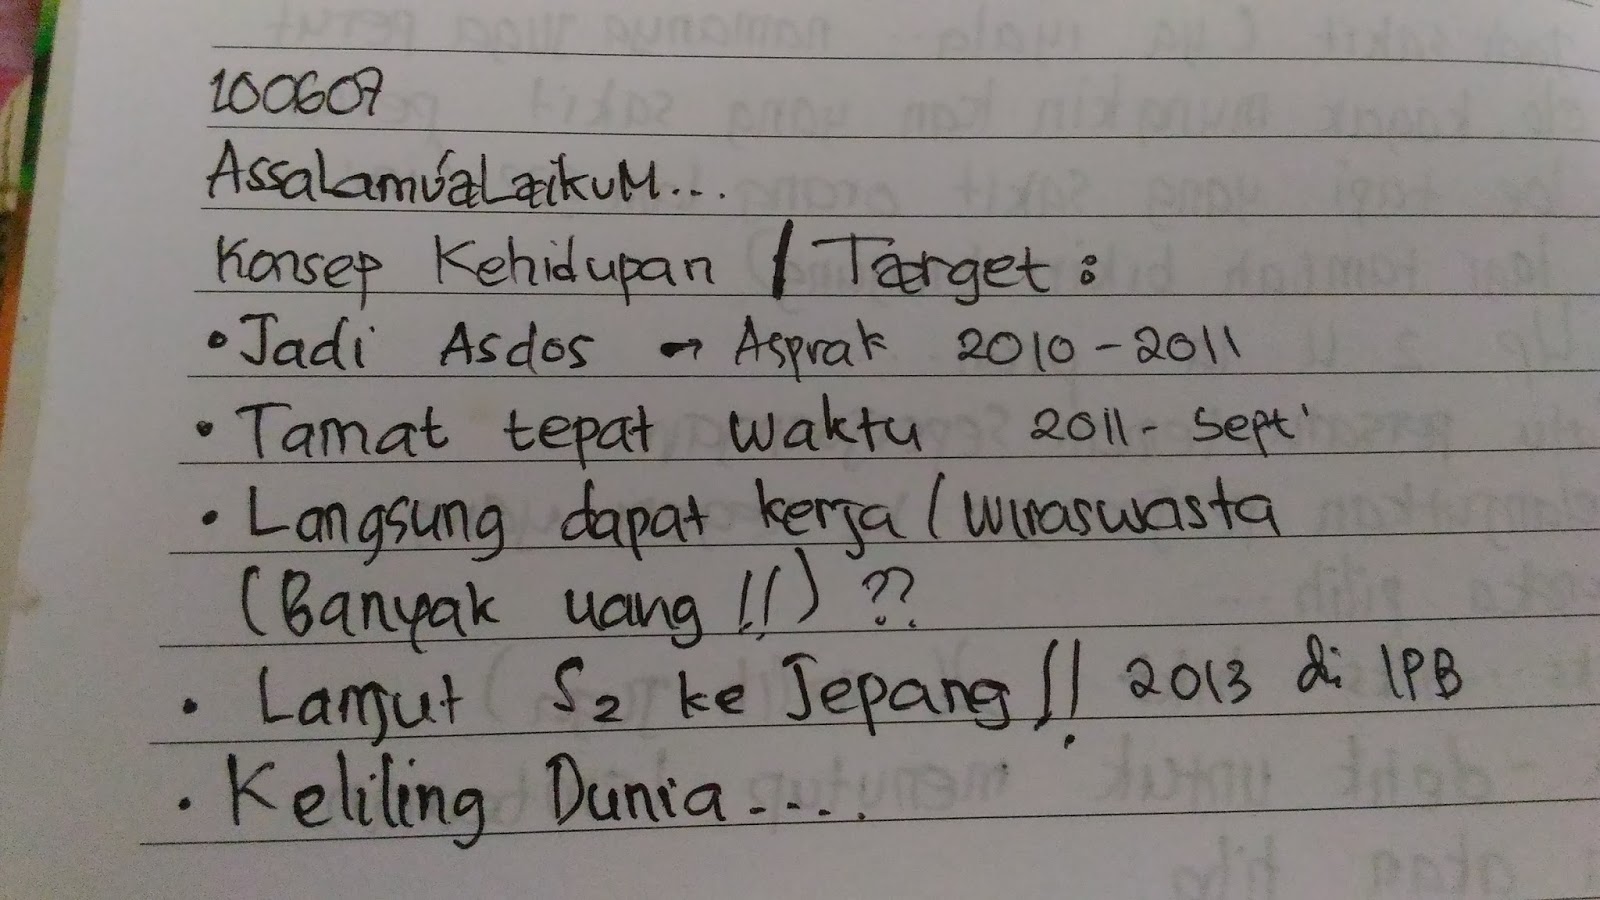 100607
Assalamu'alaikum...
Konsep Kehidupan / Target :
• Jadi Asdos → Asprak 2010 - 2011
• Tamat tepat waktu 2011 - Sept'
• Langsung dapat kerja / wiraswasta
(Banyak uang !!) ??
• Lanjut S2 ke Jepang !! 2013 di IPB
• Keliling Dunia ....